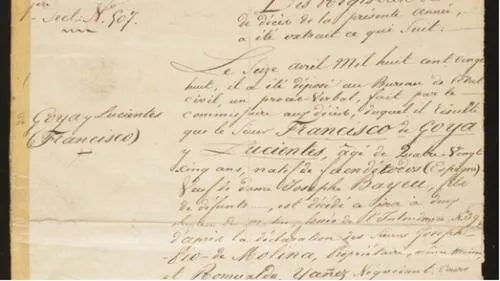 1re Sect: No 507.
Goya y Lucientes
(Francisco)
de décès de la présente année,
a été extrait ce qui Suit:
Le Seize avril Mil huit cent vingt
huit, il a été déposé au Bureau de l'état
civil, un procès-Verbal, fait par le
commissaire aux décès, duquel il résulte
que le Sieur Francisco de Goya
y Lucientes, agé de Quatre-Vingt
Cinq ans, natif de faendetodos (Espagne)
Veuf de dame Josephe Bayeu, fils
de défunts, est décédé a
de l'Intendance No 39,
d'après la déclaration des Sieurs Joseph-
Pio-de Molina, Propriétaire, même maison
et Romualdo Yañez Négociant, Cours